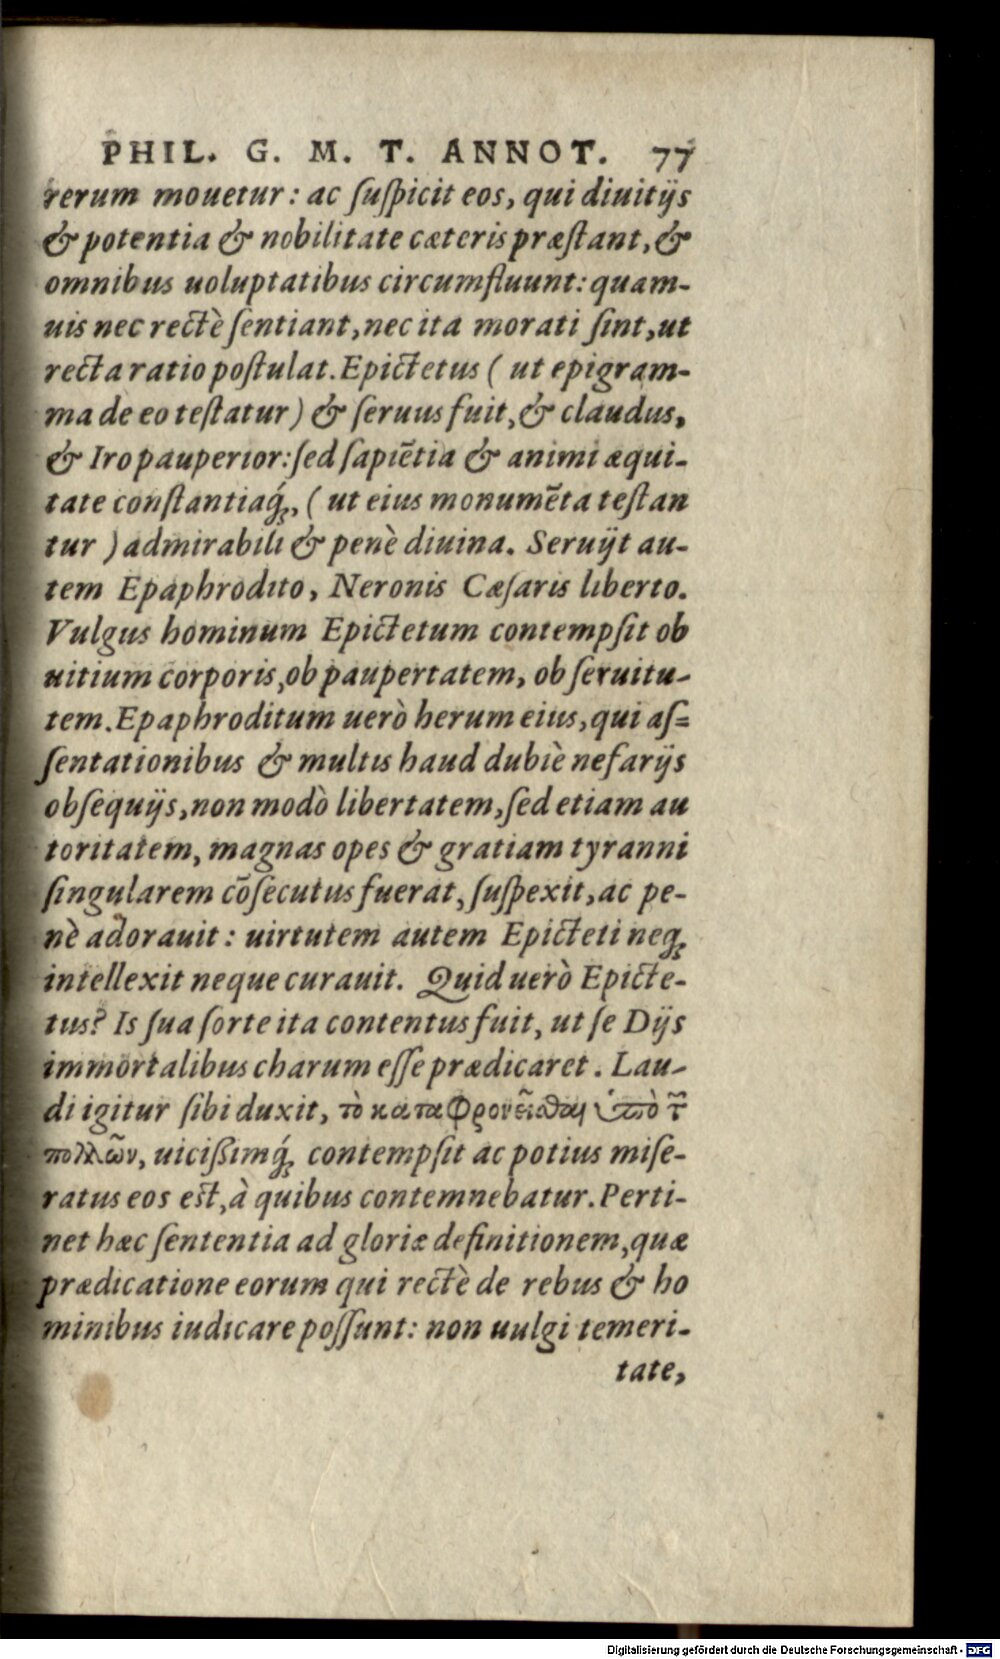 PHIL. G. M. T. ANNOT. 77
rerum mouetur: ac ſuſpicit eos, qui diuitijs
& potentia & nobilitate cæteris præſtant, &
omnibus uoluptatibus circumfluunt: quam-
uis nec rectè ſentiant, nec ita morati ſint, ut
recta ratio poſtulat. Epictetus ( ut epigram-
ma de eo teſtatur) & ſeruus fuit, & claudus,
& Iro pauperior: ſed ſapiẽtia & animi æqui-
tate conſtantiaq́;, ( ut eius monumẽta teſtan
tur ) admirabili & penè diuina. Seruijt au-
tem Epaphrodito, Neronis Cæſaris liberto.
Vulgus hominum Epictetum contempſit ob
uitium corporis, ob paupertatem, ob ſeruitu-
tem. Epaphroditum uerò herum eius, qui aſ-
ſentationibus & multis haud dubiè nefarijs
obſequijs, non modò libertatem, ſed etiam au
toritatem, magnas opes & gratiam tyranni
ſingularem cõſecutus fuerat, ſuſpexit, ac pe-
nè adorauit: uirtutem autem Epicteti neq;
intellexit neque curauit. Quid uerò Epicte-
tus? Is ſua ſorte ita contentus fuit, ut ſe Dijs
immortalibus charum eſſe prædicaret. Lau-
di igitur ſibi duxit, τὸ καταφρονεῖσθαι ὑπὸ τῶν
πολλῶν, uicißimq́; contempſit ac potius miſe-
ratus eos eſt, à quibus contemnebatur. Perti-
net hæc ſententia ad gloriæ definitionem, quæ
prædicatione eorum qui rectè de rebus & ho
minibus iudicare poſſunt: non uulgi temeri-
tate,
Digitalisierung gefördert durch die Deutsche Forschungsgemeinschaft - DFG